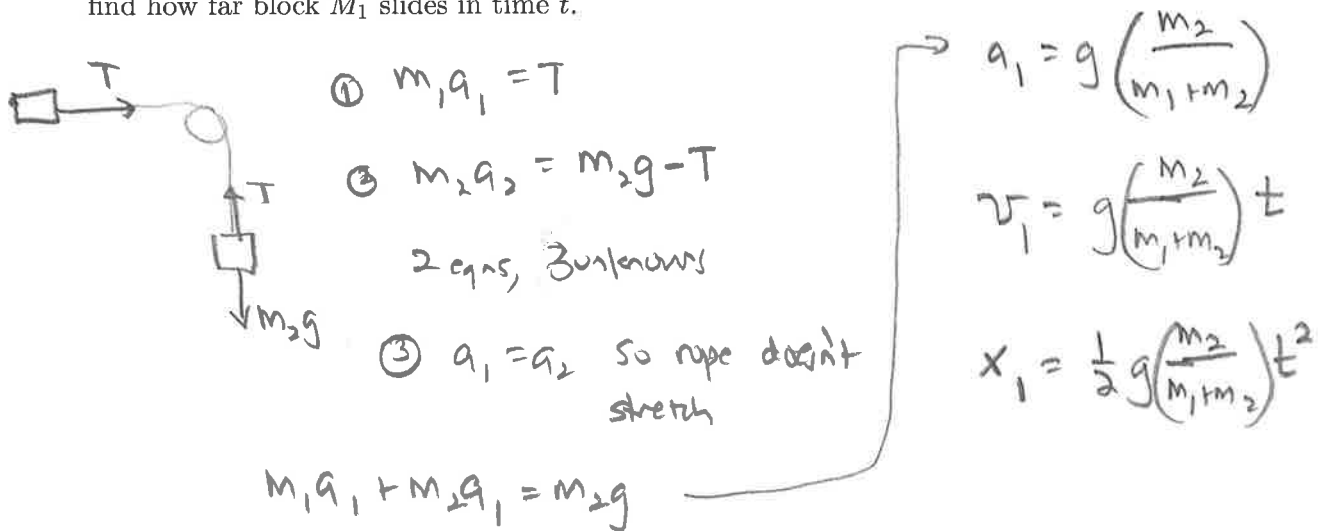 find how far block M₁ slides in time t.
T
① m₁a₁ = T
T
② m₂a₂ = m₂g - T
2 eqns, 3 unknowns
m₂g
③ a₁ = a₂ so rope doesn't
stretch
m₁a₁ + m₂a₁ = m₂g
a₁ = g(m₂/(m₁+m₂))
v₁ = g(m₂/(m₁+m₂)) t
x₁ = ½ g(m₂/(m₁+m₂)) t²